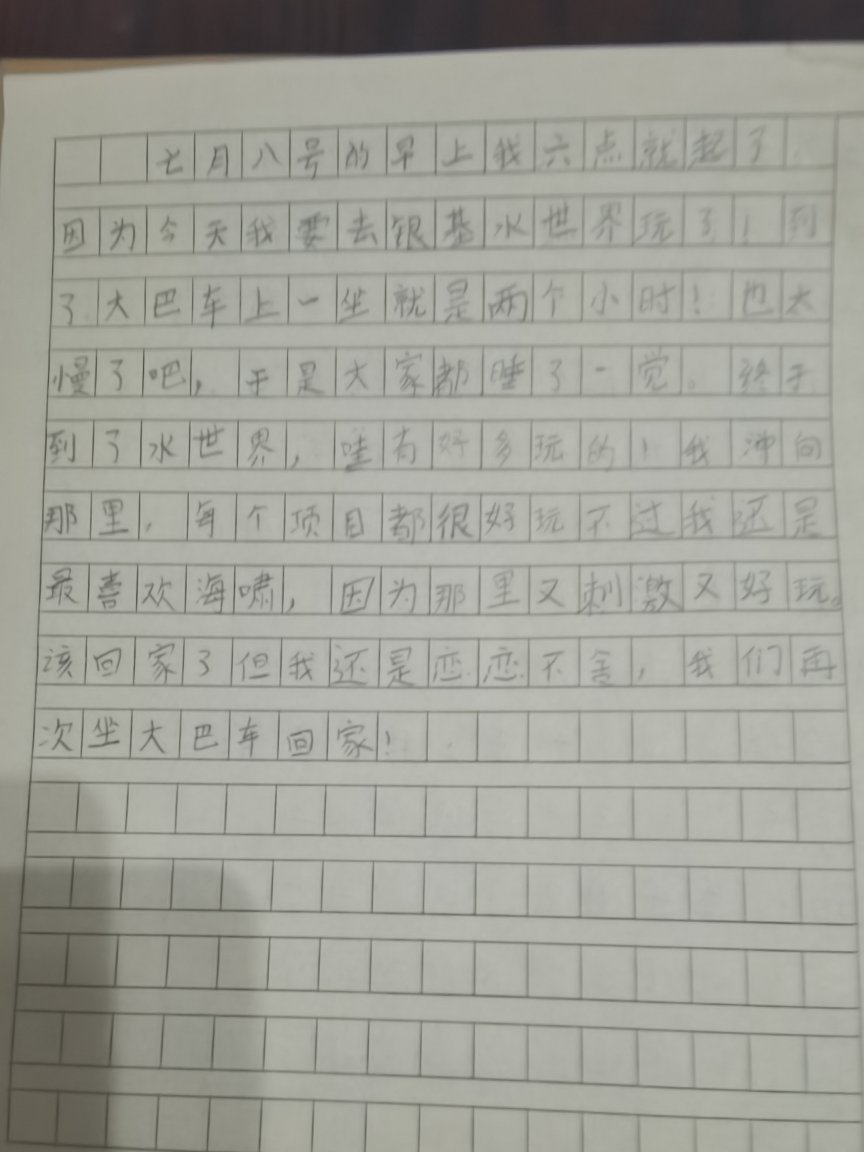 七月八号的早上我六点就起了
因为今天我要去银基水世界玩了！到
了大巴车上一坐就是两个小时！也太
慢了吧，于是大家都睡了一觉。终于
到了水世界，哇有好多玩的！我冲向
那里，每个项目都很好玩不过我还是
最喜欢海啸，因为那里又刺激又好玩。
该回家了但我还是恋恋不舍，我们再
次坐大巴车回家！